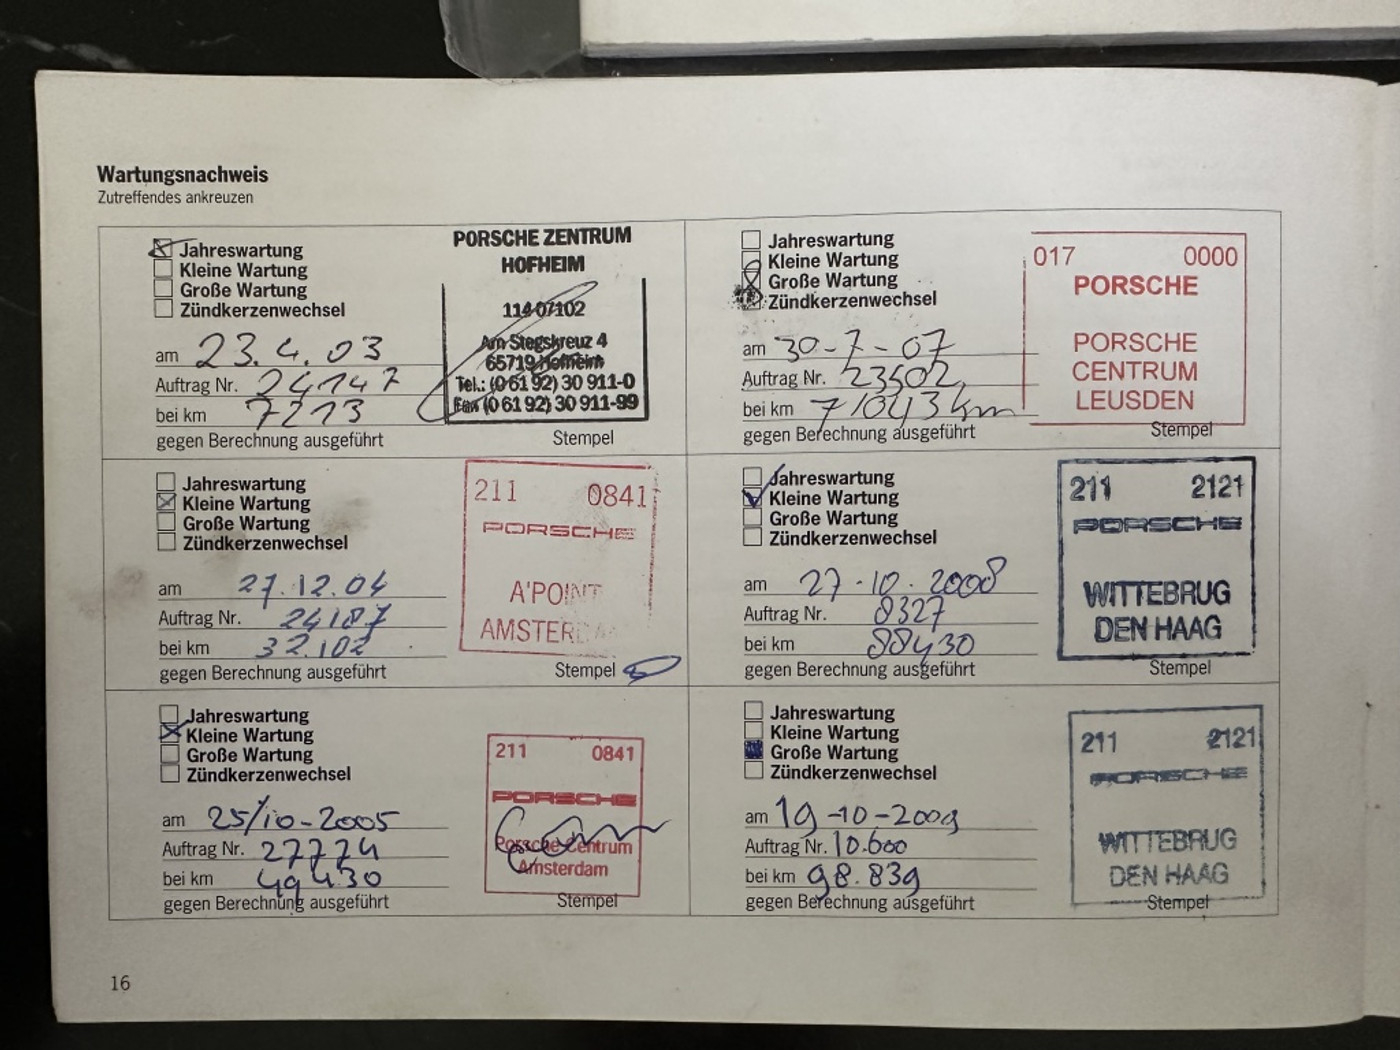 Wartungsnachweis
Zutreffendes ankreuzen
Jahreswartung
Kleine Wartung
Große Wartung
Zündkerzenwechsel
am 23.4.03
Auftrag Nr. 24147
bei km 7213
gegen Berechnung ausgeführt
PORSCHE ZENTRUM
HOFHEIM
11407102
Am Stegskreuz 4
65719 Hofheim
Tel.: (0 61 92) 30 911-0
Fax (0 61 92) 30 911-99
Stempel
Jahreswartung
Kleine Wartung
Große Wartung
Zündkerzenwechsel
am 27.12.04
Auftrag Nr. 24187
bei km 32.102
gegen Berechnung ausgeführt
211 0841
PORSCHE
A'POINT
AMSTERDAM
Stempel
Jahreswartung
Kleine Wartung
Große Wartung
Zündkerzenwechsel
am 25/10-2005
Auftrag Nr. 27774
bei km 49430
gegen Berechnung ausgeführt
211 0841
PORSCHE
Porsche Centrum
Amsterdam
Stempel
Jahreswartung
Kleine Wartung
Große Wartung
Zündkerzenwechsel
am 30-7-07
Auftrag Nr. 23502
bei km 71043 km
gegen Berechnung ausgeführt
017 0000
PORSCHE
PORSCHE
CENTRUM
LEUSDEN
Stempel
Jahreswartung
Kleine Wartung
Große Wartung
Zündkerzenwechsel
am 27-10-2008
Auftrag Nr. 8327
bei km 88430
gegen Berechnung ausgeführt
211 2121
PORSCHE
WITTEBRUG
DEN HAAG
Stempel
Jahreswartung
Kleine Wartung
Große Wartung
Zündkerzenwechsel
am 19-10-2009
Auftrag Nr. 10.600
bei km 98.839
gegen Berechnung ausgeführt
211 2121
PORSCHE
WITTEBRUG
DEN HAAG
Stempel
16